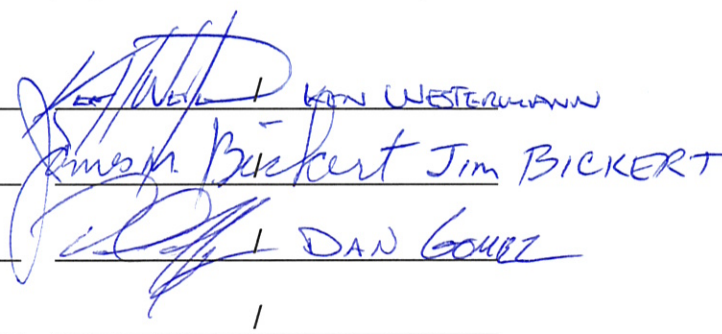 / KEN WESTERMANN
James M Bickert / Jim BICKERT
/ DAN GOMEZ
/